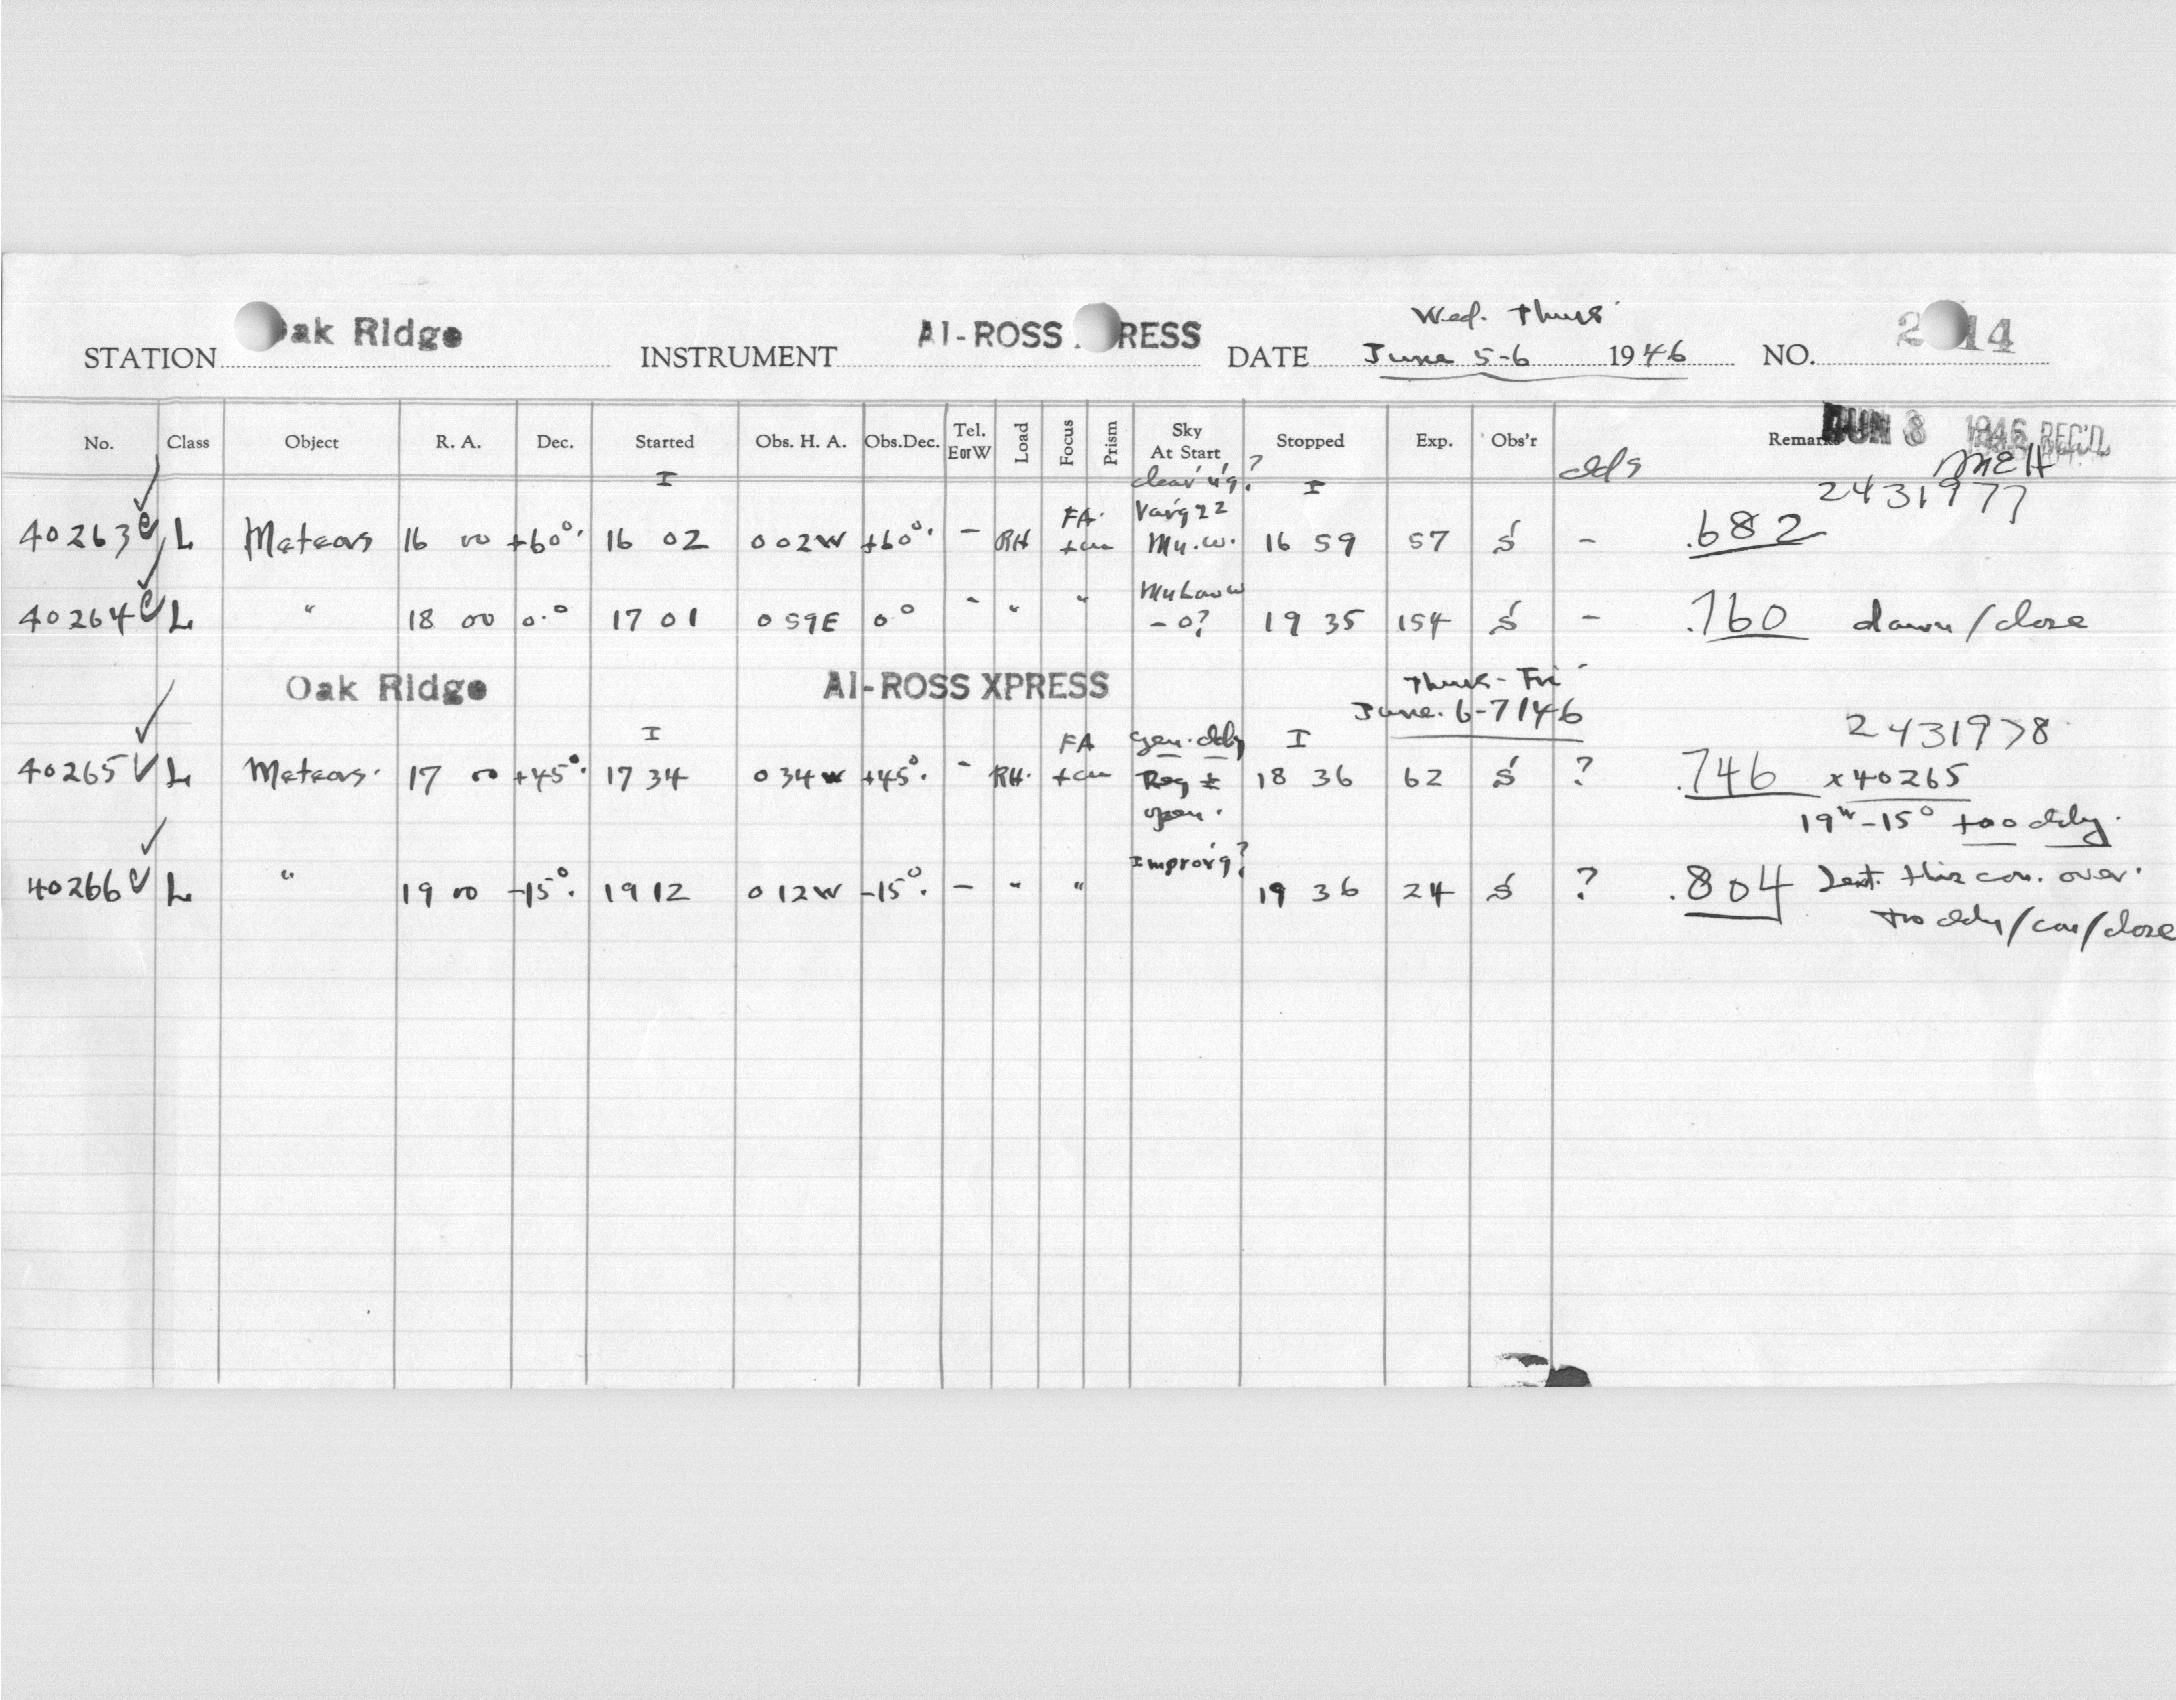 STATION Oak Ridge INSTRUMENT AI-ROSS XPRESS DATE Wed. Thurs June 5-6 1946 NO. 2 14
No. Class Object R. A. Dec. Started Obs. H. A. Obs.Dec. Tel. EorW Load Focus Prism Sky At Start Stopped Exp. Obs'r clds Remarks JUN 8 1946 REC'D
MEH
I clear'g? I 2431977
40263 L Meteors 16 00 +60°. 16 02 0 02W +60°. - RH FA. + cm Var'g 22 Mu.w. 16 59 57 S - .682
40264 L " 18 00 0.° 17 01 0 59E 0° - " " - 0? 19 35 154 S - .760 dawn/close
Oak Ridge AI-ROSS XPRESS Thurs-Fri June. 6-7/46
I gen. cldy I 2431978
40265 L Meteors. 17 00 +45°. 17 34 0 34W +45°. - RH. FA + cm Reg ± open. 18 36 62 S ? .746 x40265
19h -15° too cldy.
40266 L " 19 00 -15°. 19 12 0 12W -15°. - " " Improv'g? 19 36 24 S ? .804 this cam. over.
too cldy/cam/close